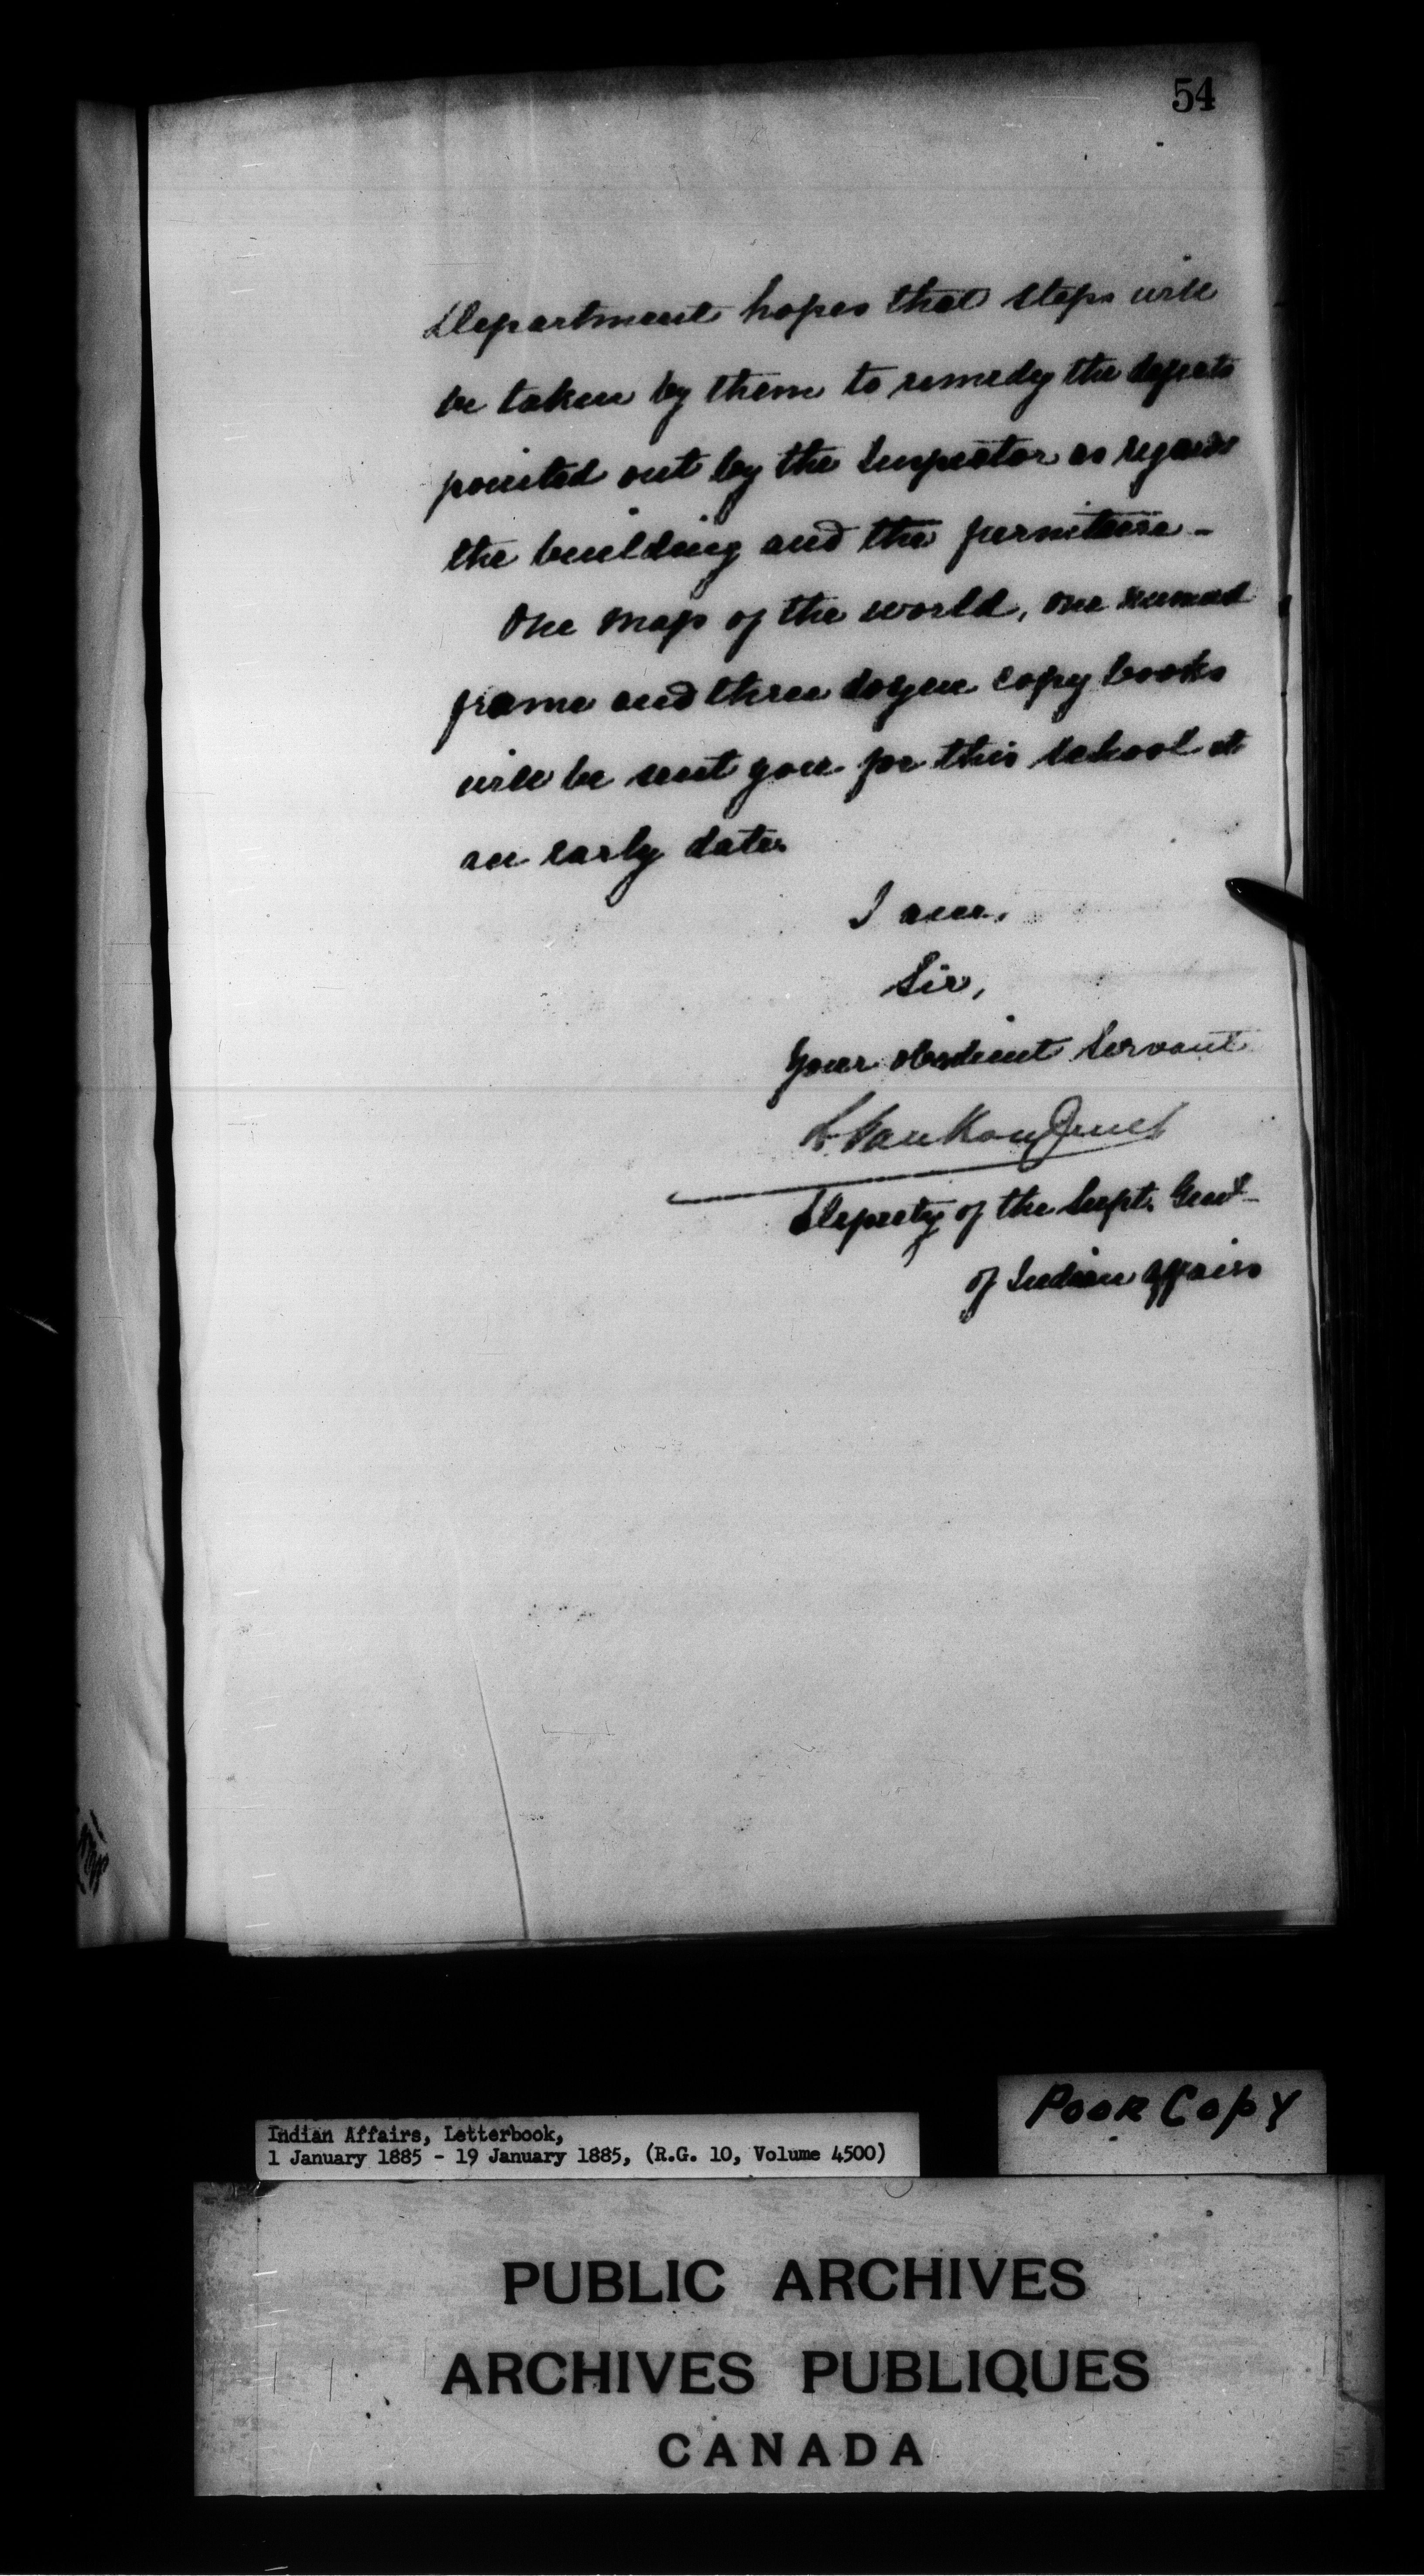 54
Department hopes that steps will
be taken by them to remedy the defects
pointed out by the Inspector as regards
the building and the furniture -
One map of the world, one numeral
frame and three dozen copy books
will be sent you for this school at
an early date.
I am,
Sir,
Your obedient Servant
L. VanKoughnet
Deputy of the Supt. Genl
of Indian Affairs
Poor Copy
Indian Affairs, Letterbook,
1 January 1885 - 19 January 1885, (R.G. 10, Volume 4500)
PUBLIC ARCHIVES
ARCHIVES PUBLIQUES
CANADA